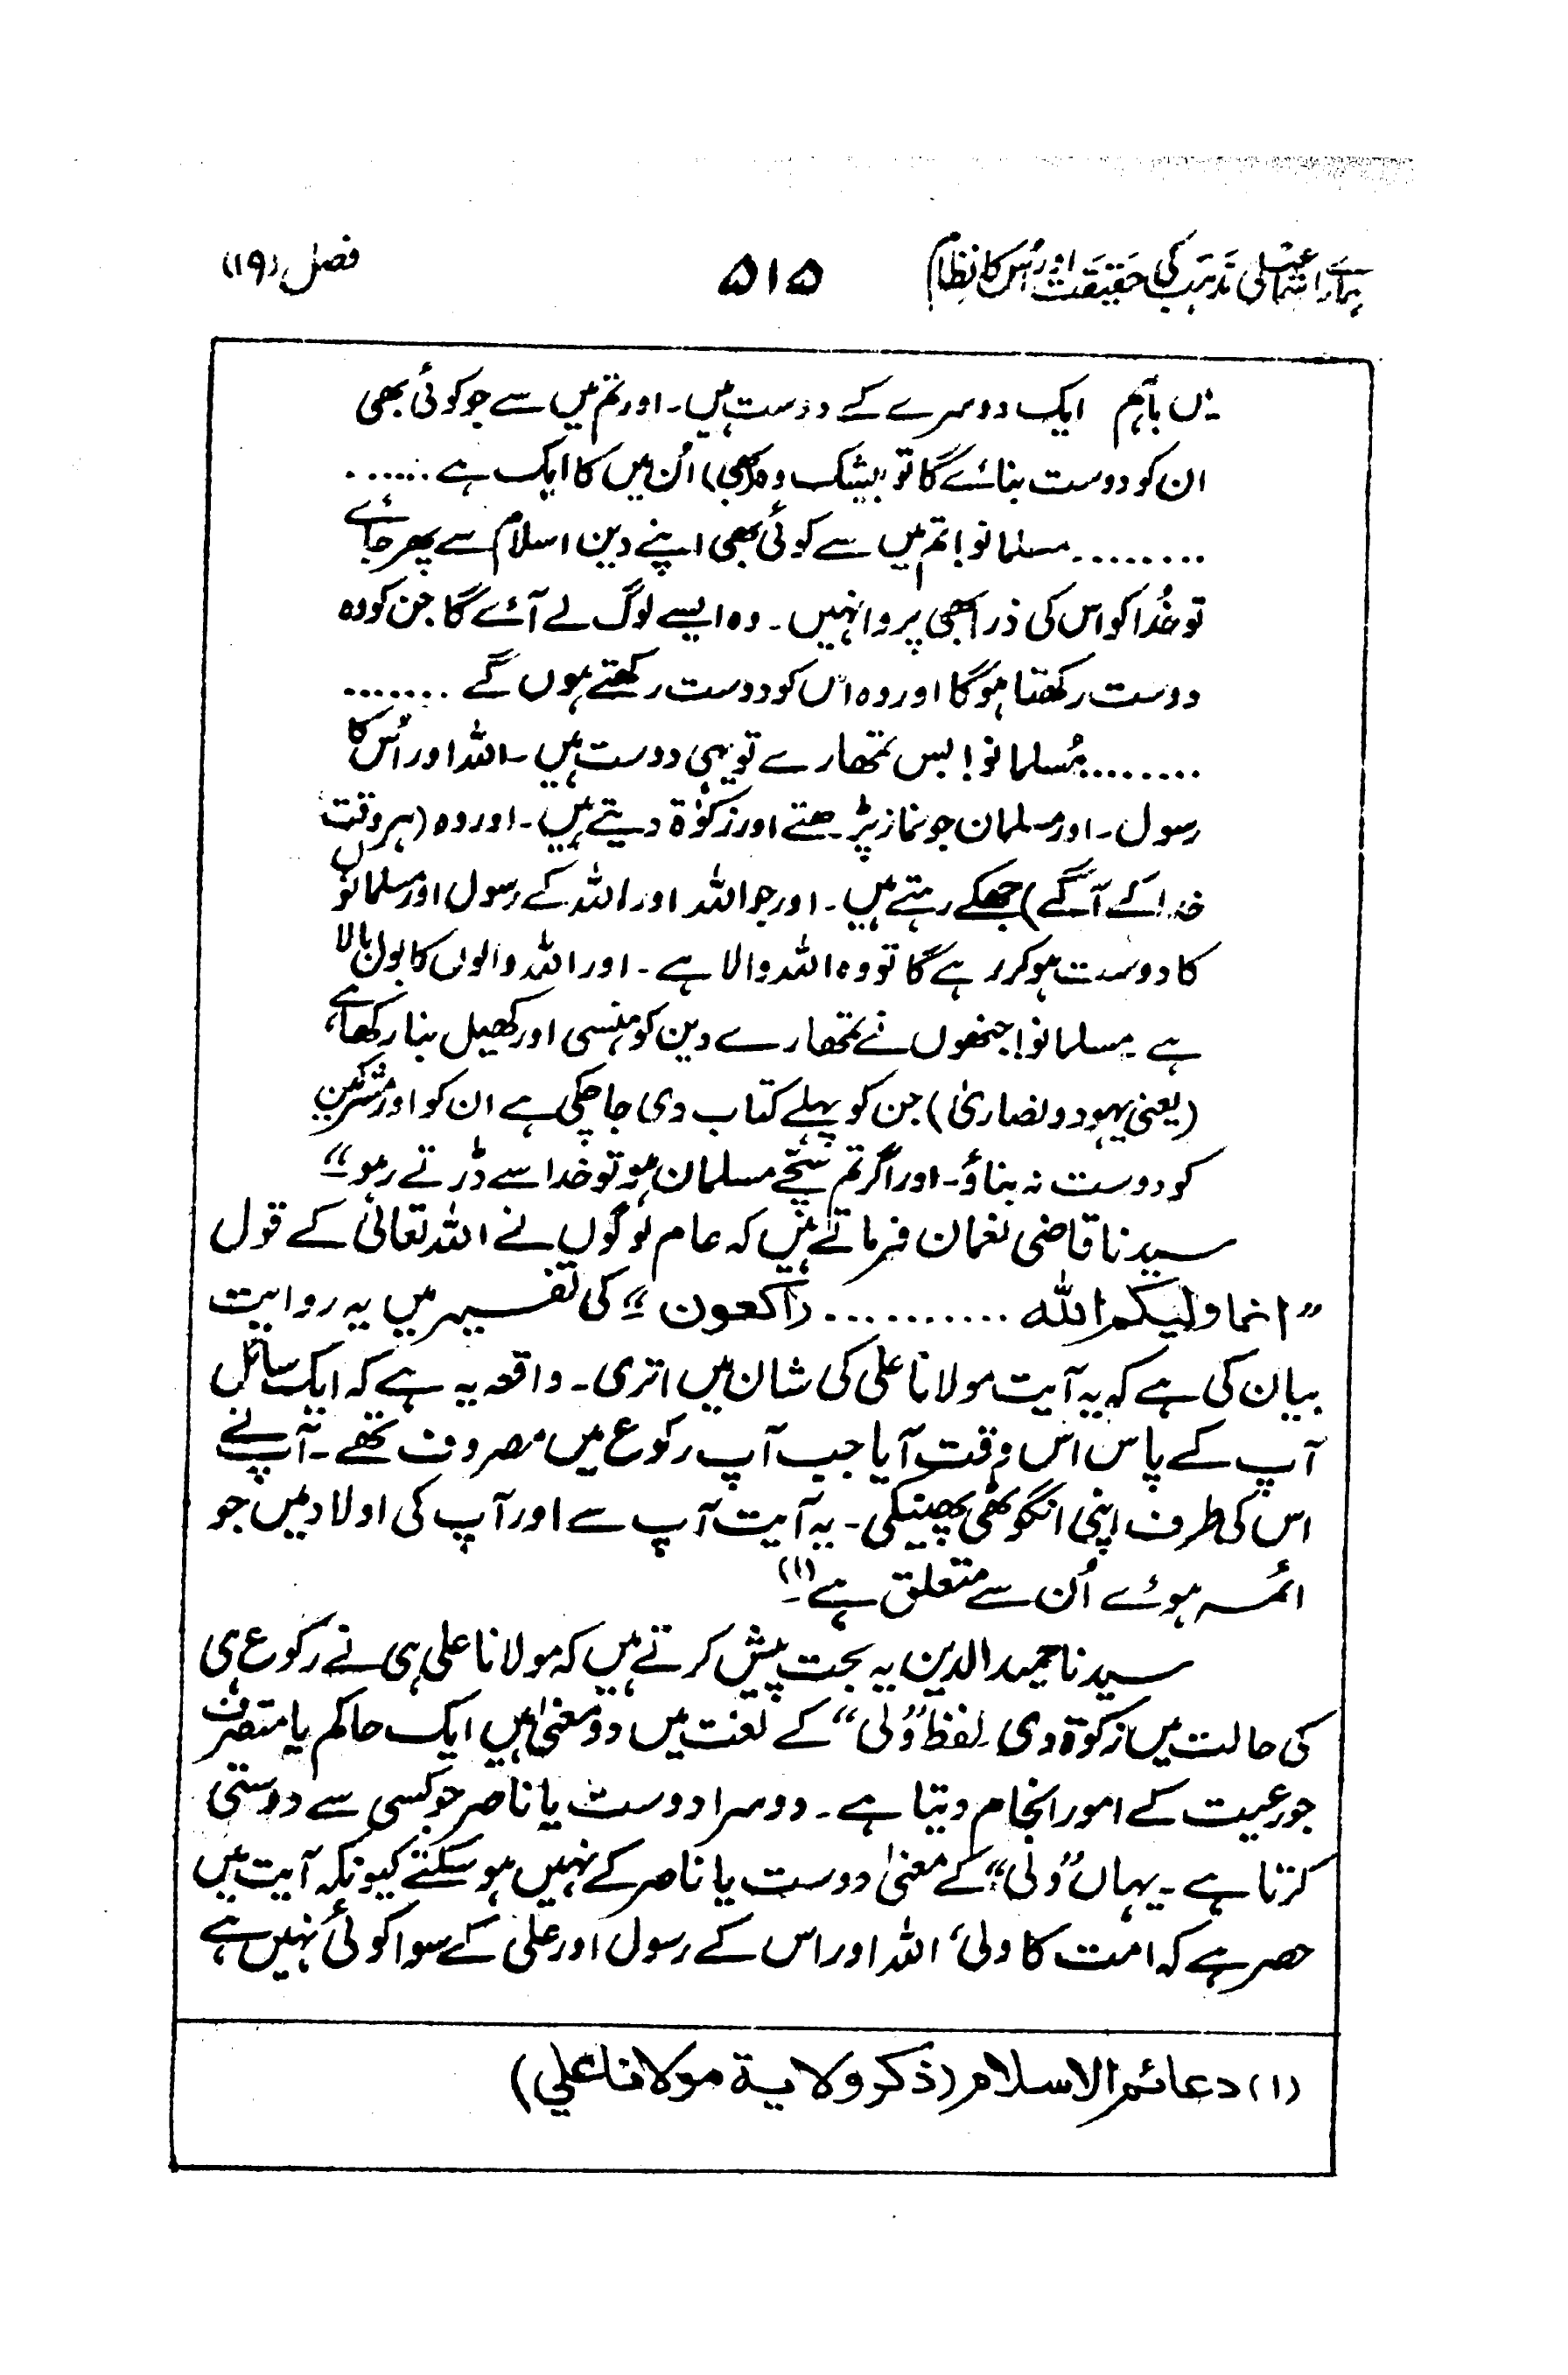 ہمارے اسماعیلی مذہب کی حقیقت اور اُس کا نظام ۵۱۵ فصل (۱۹)
باہم ایک دوسرے کے دوست ہیں۔ اور تم میں سے جو کوئی بھی
ان کو دوست بنائے گا تو بیشک وہ (بھی) اُن میں کا ایک ہے ......
......... مسلمانو! تم میں سے کوئی بھی اپنے دین اسلام سے پھر جائے
تو خُدا کو اس کی ذرا بھی پروا نہیں۔ وہ ایسے لوگ لے آئے گا جن کو وہ
دوست رکھتا ہوگا اور وہ اس کو دوست رکھتے ہوں گے .......
........ مُسلمانو! بس تمھارے تو یہی دوست ہیں۔ اللہ اور اُس کا
رسول۔ اور مسلمان جو نماز پڑھتے اور زکوٰۃ دیتے ہیں۔ اور وہ (ہر وقت
خدا کے آگے) جھکے رہتے ہیں۔ اور جو اللہ اور اللہ کے رسول اور مسلمانوں
کا دوست ہو کر رہے گا تو وہ اللہ والا ہے۔ اور اللہ والوں کا بول بالا
ہے۔ مسلمانو! جنھوں نے تمھارے دین کو ہنسی اور کھیل بنا رکھا ہے،
(یعنی یہود و نصاریٰ) جن کو پہلے کتاب دی جا چکی ہے ان کو اور مشرکین
کو دوست نہ بناؤ۔ اور اگر تم سچّے مسلمان ہو تو خدا سے ڈرتے رہو“
سیدنا قاضی نعمان فرماتے ہیں کہ عام لوگوں نے اللہ تعالیٰ کے قول
”انما ولیکم اللہ .......... راکعون“ کی تفسیر میں یہ روایت
بیان کی ہے کہ یہ آیت مولانا علی کی شان میں اتری۔ واقعہ یہ ہے کہ ایک سائل
آپ کے پاس اس وقت آیا جب آپ رکوع میں مصروف تھے۔ آپ نے
اس کی طرف اپنی انگوٹھی پھینکی۔ یہ آیت آپ سے اور آپ کی اولاد میں جو
ائمہ ہوئے اُن سے متعلق ہے۔(۱)
سیدنا حمید الدین یہ حجت پیش کرتے ہیں کہ مولانا علی ہی نے رکوع ہی
کی حالت میں زکوٰۃ دی۔ لفظ ”وَلی“ کے لغت میں دو معنیٰ ہیں ایک حاکم یا متصرف
جو رعیت کے امور انجام دیتا ہے۔ دوسرا دوست یا ناصر جو کسی سے دوستی
کرتا ہے۔ یہاں ”وَلی“ کے معنیٰ دوست یا ناصر کے نہیں ہو سکتے کیونکہ آیت میں
حصر ہے کہ امت کا ولی، اللہ اور اس کے رسول اور علی کے سوا کوئی نہیں ہے
(۱) دعائم الاسلام (ذکر ولایة مولانا علي)